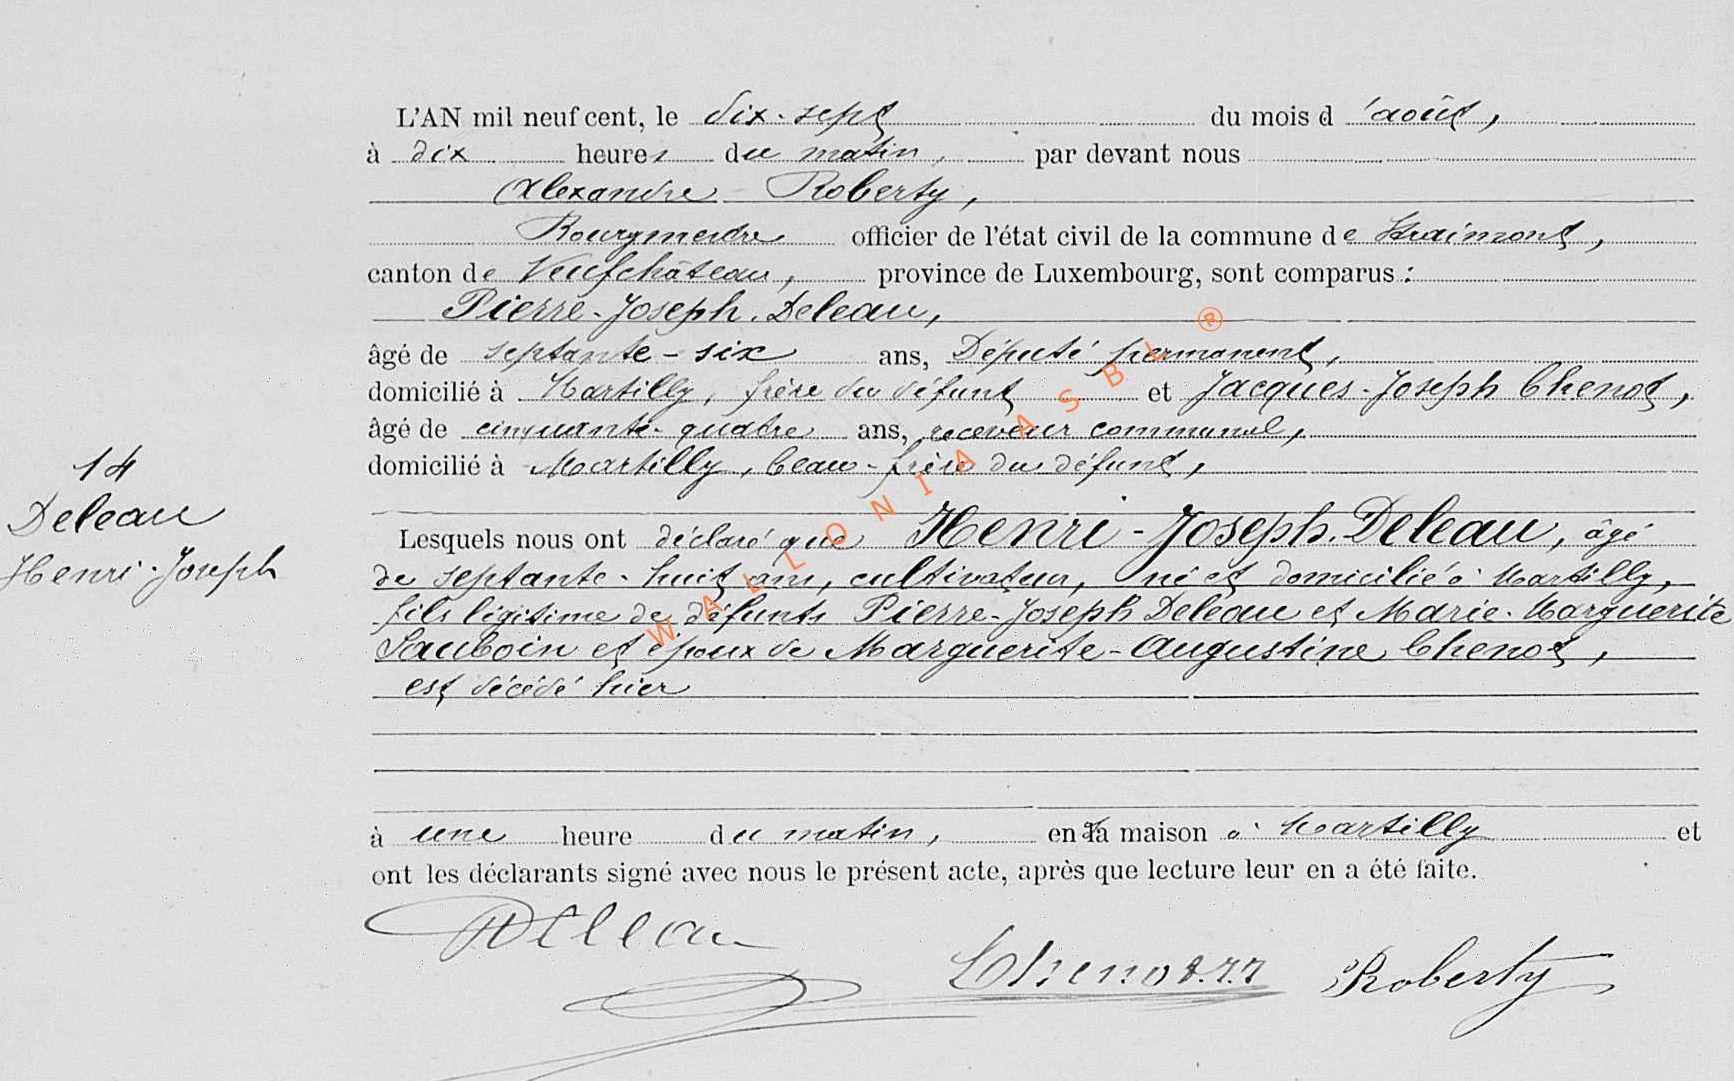 L'AN mil neuf cent, le dix-sept du mois d'août,
à dix heures du matin, par devant nous
Alexandre Roberty,
Bourgmestre officier de l'état civil de la commune de Straimont,
canton de Neufchâteau, province de Luxembourg, sont comparus :
Pierre-Joseph Deleau,
âgé de septante-six ans, Député permanent,
domicilié à Martilly, frère du défunt et Jacques-Joseph Chenot,
âgé de cinquante-quatre ans, receveur communal,
domicilié à Martilly, beau-frère du défunt,
14
Deleau
Henri-Joseph
Lesquels nous ont déclaré que Henri-Joseph Deleau, âgé
de septante-huit ans, cultivateur, né et domicilié à Martilly,
fils légitime de défunts Pierre-Joseph Deleau et Marie-Marguerite
Sauboin et époux de Marguerite-Augustine Chenot,
est décédé hier
à une heure du matin, en sa maison à Martilly et
ont les déclarants signé avec nous le présent acte, après que lecture leur en a été faite.
Deleau
Chenot J.J. Roberty
WALLONIA ASBL ®